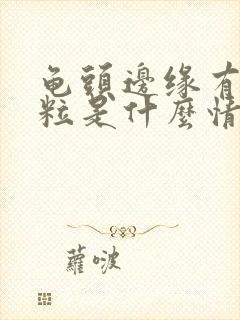 龟頭邊缘有
粒是什麼情
蘿啵